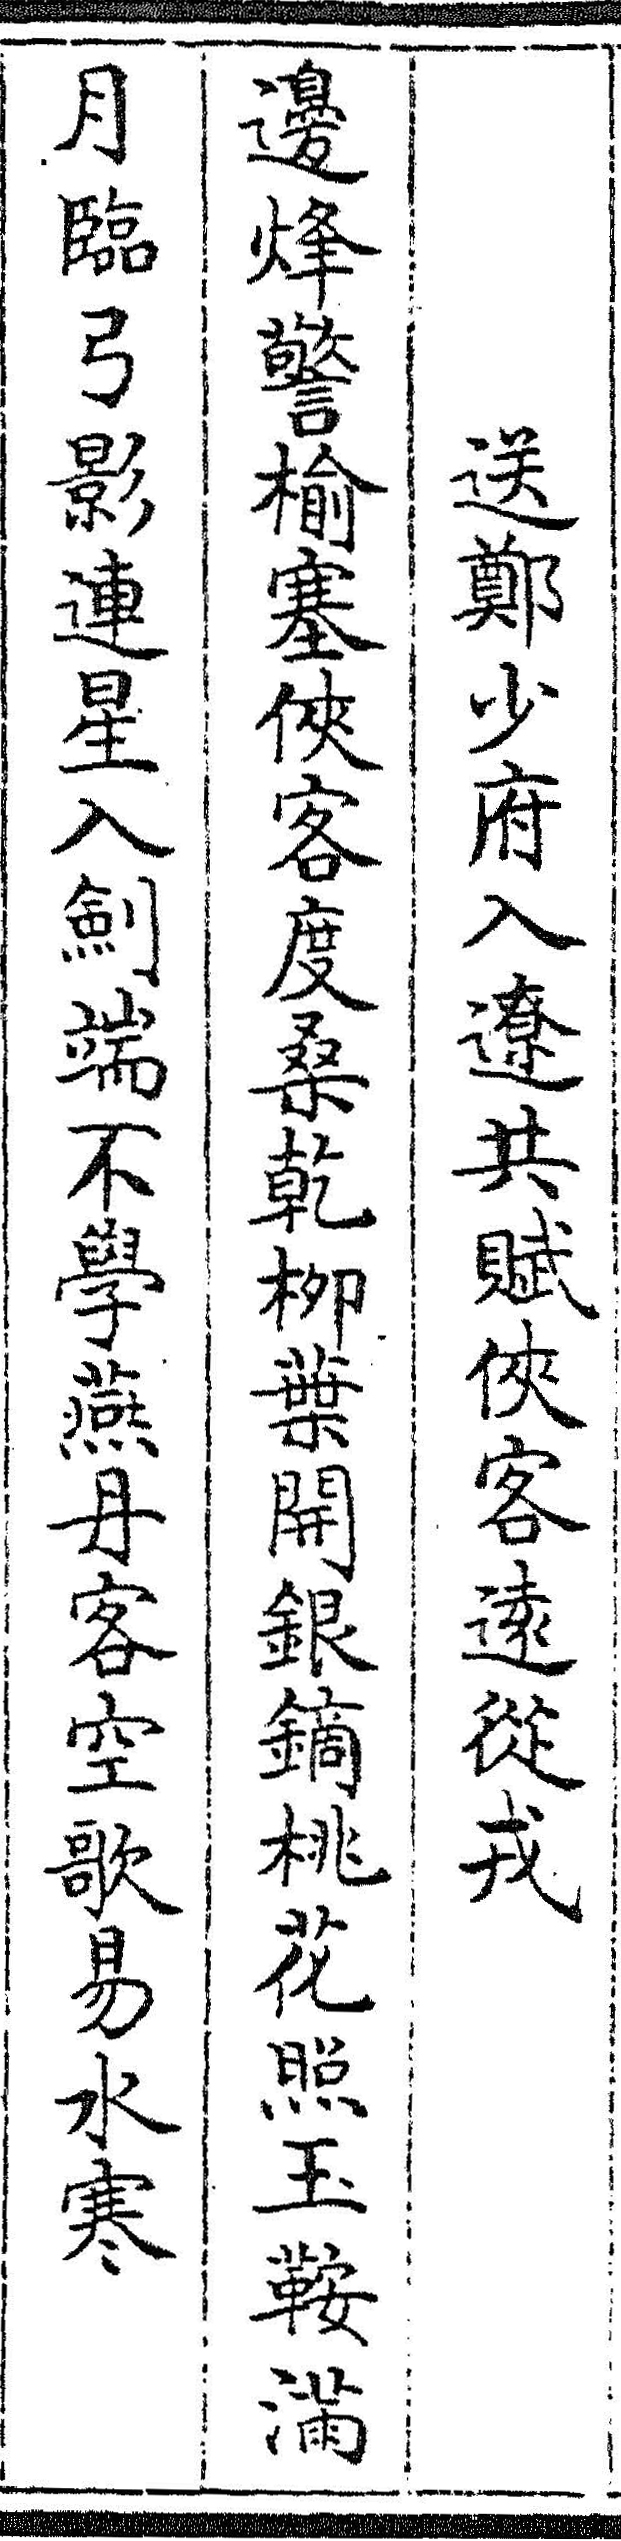 送鄭少府入遼共賦俠客遠從戎
邊烽警榆塞俠客度桑乾柳葉開銀鏑桃花照玉鞍滿
月臨弓影連星入劍端不學燕丹客空歌易水寒